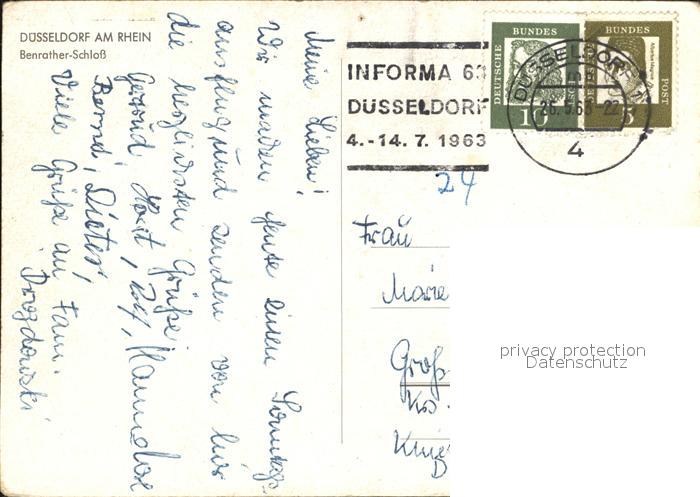 DÜSSELDORF AM RHEIN
Benrather-Schloß
Meine Lieben!
Wir machen heute einen Sonntags-
ausflug und senden von hier
die herzlichsten Grüße
Gerd, Horst, Rolf, Hannelore
Bernd, Dieter,
Viele Grüße an Fam.
Drozdowski
INFORMA 63
DÜSSELDORF
4.-14. 7. 1963
DEUTSCHE
BUNDES
POST
DÜSSELDORF 1
26.5.63-22
4
24
Frau
Marie
Groß-
Krs.
privacy protection
Datenschutz